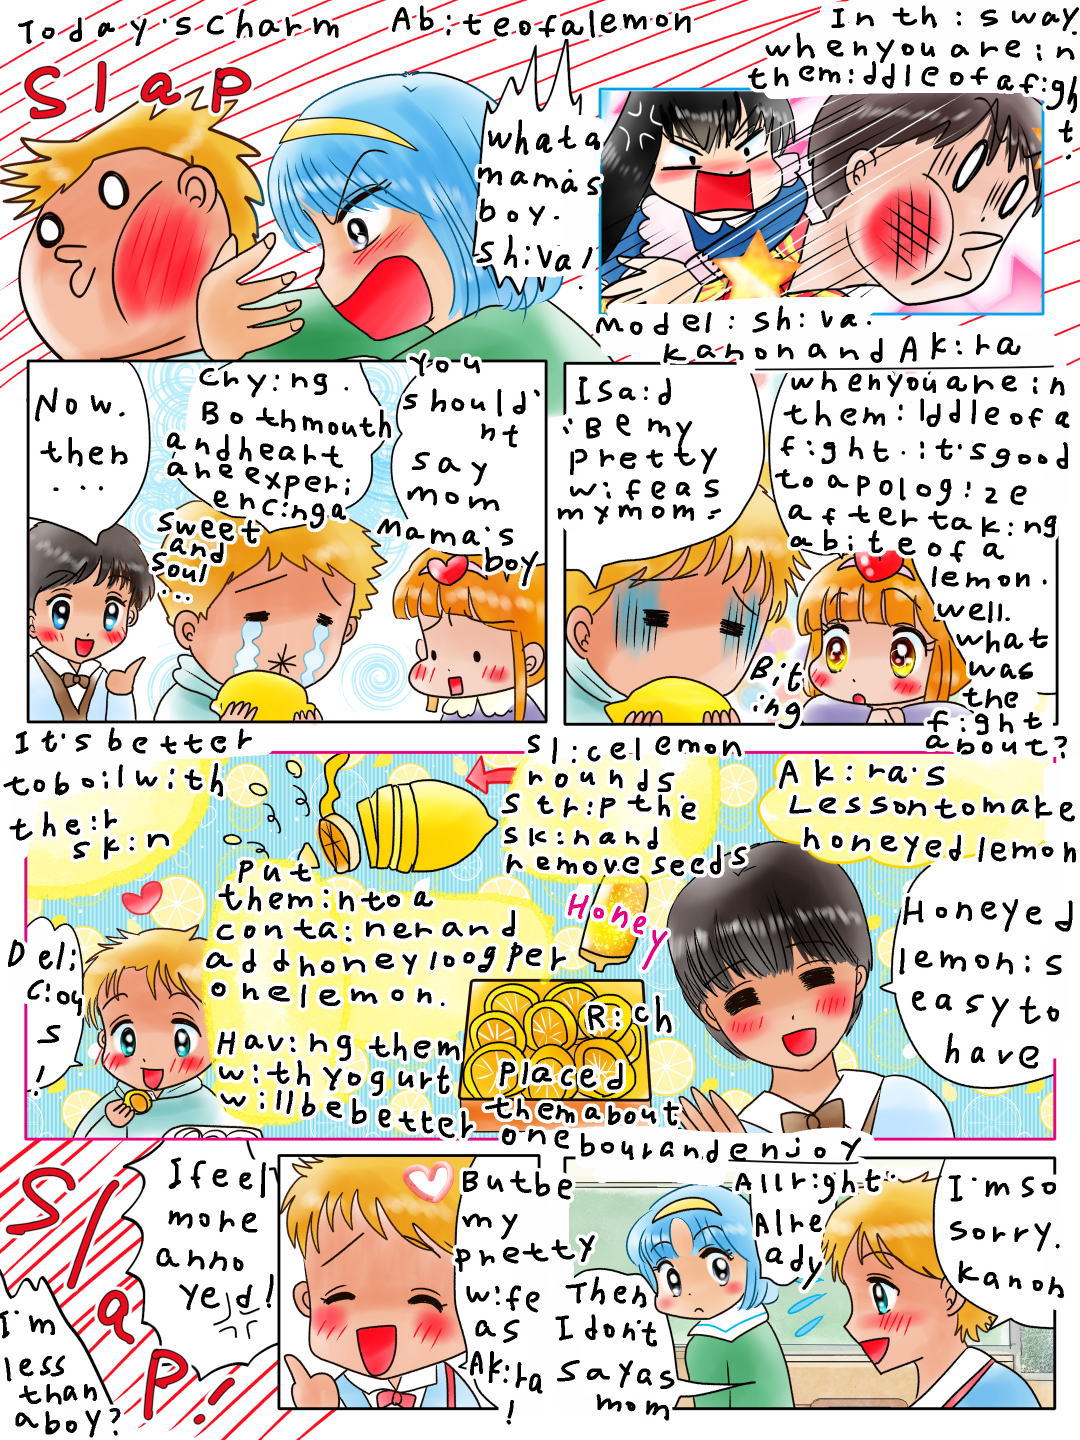 Today's charm  A bite of a lemon
In this way.
when you are in
the middle of a figh
t.
Slap
what a
mama's
boy.
Shiva!
model: shiva.
kanon and Akira
Now.
then
...
Crying.
Both mouth
and heart
are experi
encing a
sweet
and
soul
...
You
should'
nt
say
mom
mama's
boy
I said
:Be my
pretty
wife as
my mom-
when you are in
the mi lddle of a
fight. it's good
to apologize
after taking
a bite of a
lemon.
well.
what
was
the
fight
about?
Bit
ing
It's better
to boil with
their
skin
Slice lemon
rounds.
Strip the
skin and
remove seeds
Akira's
Lesson to make
honeyed lemon
Put
them into a
container and
add honey 100g per
one lemon.
Honey
Honeyed
lemon is
easy to
have
Deli
ciou
s
!
Having them
with yogurt
will be better
Rich
Placed
them about
one hour and enjoy
Slap!
I feel
more
anno
yed!
I'm
less
than
a boy?
But be
my
pretty
wife
as
Akira
!
All right.
Alre
ady
I'm so
sorry.
kanon
Then
I don't
say as
mom